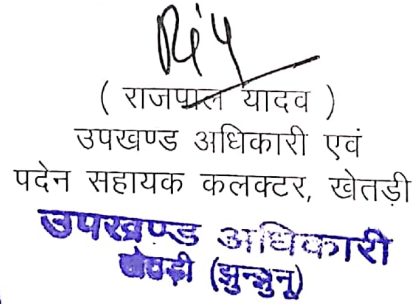 ( राजपाल यादव )
उपखण्ड अधिकारी एवं
पदेन सहायक कलक्टर, खेतड़ी
उपखण्ड अधिकारी
खेतड़ी (झुन्झुनू)